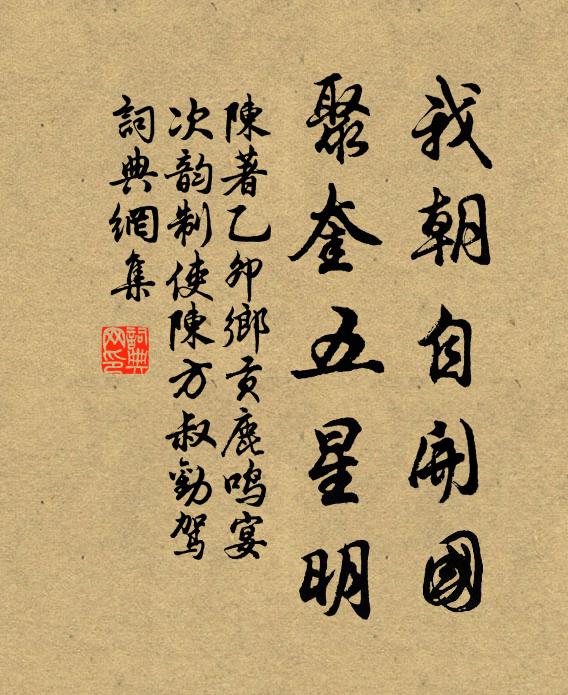 我朝自開國
聚奎五星明
陳著乙卯鄉貢鹿鳴宴
次韵制使陳方叔勸駕
詞典網集
詞典网印